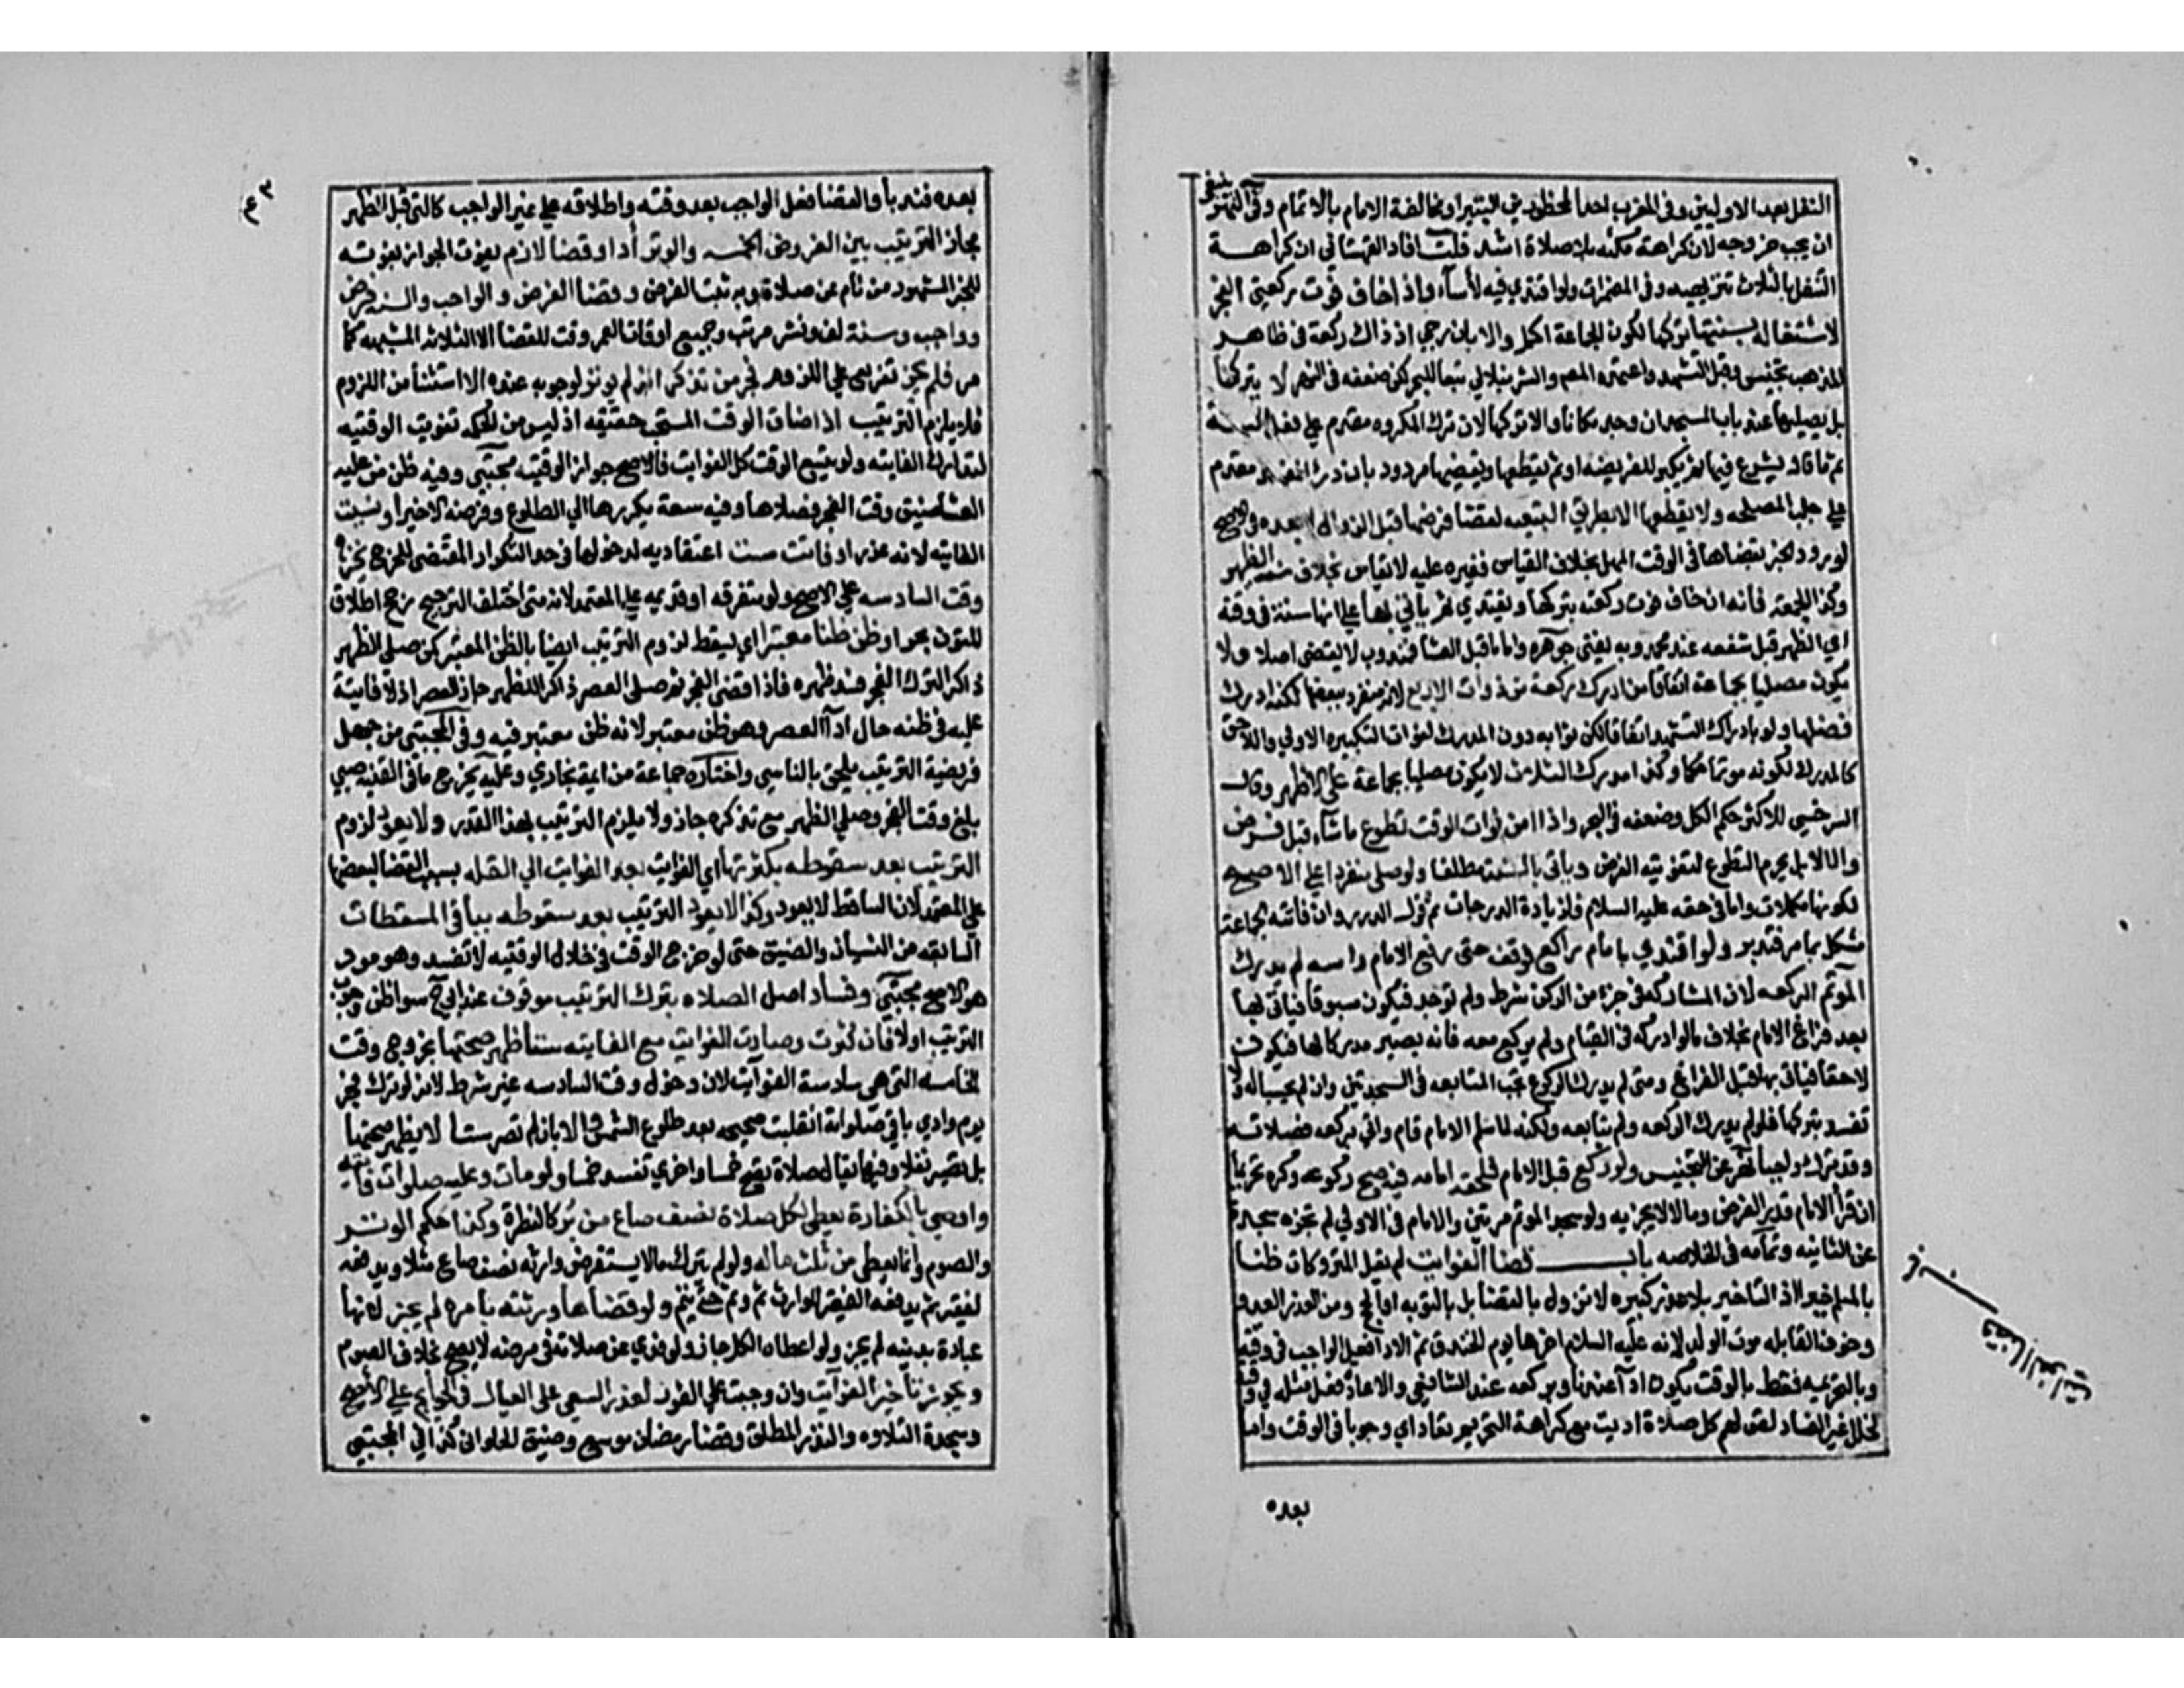 النفل بعد الاوليين وفي المغرب احد المحظورين البتيرا ومخالفة الامام بالاتمام وفي النهر ينبغي
ان يجب خروجه لان كراهة مكثه بلا صلاة اشد قلت افاد القهستاني ان كراهة
التنفل بالثلاث تنزيهيه وفي المضمرات ولو اقتدي فيه لأساء واذا خاف فوت ركعتي الفجر
لاشتغاله بسنتها تركها لكون الجماعة اكمل والا بان رجي ادراك ركعة في ظاهر
المذهب وقيل التشهد واعتمده المص والشرنبلالي تبعا للبحر لكن ضعفه في النهر لا يتركها
بل يصليها عند باب المسجد ان وجد مكانا والا تركها لان ترك المكروه مقدم علي فعل السنة
ثم ما قيل يشرع فيها ثم يكبر للفريضه او ثم يقطعها ويقضيها مردود بان درء المفسده مقدم
علي جلب المصلحه ولا يقضيها الا بطريق التبعيه لقضا فرضها قبل الزوال لا بعده في الاصح
لورود الخبر بقضاها في الوقت المهمل بخلاف القياس فغيره عليه لا يقاس بخلاف سنة الظهر
وكذا الجمعة فانه ان خاف فوت ركعة يتركها ويقتدي ثم ياتي بها علي انها سنة في وقته
اي الظهر قبل شفعه عند محمد وبه يفتي جوهره واما ما قبل العشا فمندوب لا يقضي اصلا ولا
يكون مصليا بجماعة اتفاقا من ادرك ركعة من ذوات الاربع لانه منفرد ببعضها لكنه ادرك
فضلها ولو بادراك التشهد اتفاقا لكن ثوابه دون المدرك لفوات التكبيره الاولي واللاحق
كالمدرك لكونه موتما حكما وكذا مدرك الثلاث لا يكون مصليا بجماعة علي الاظهر وقال
السرخسي للاكثر حكم الكل وضعفه في البحر واذا امن فوات الوقت تطوع ما شاء قبل فرض
والا لا بل يحرم التطوع لتفويته الفرض ويأتي بالسنة مطلقا ولو صلي منفردا علي الاصح
لكونها مكملات واما في حقه عليه السلام فلزيادة الدرجات ثم قول الدرر وان فاتته الجماعة
مشكل بما مر فتدبر ولو اقتدي بامام راكع فوقف حتى رفع الامام راسه لم يدرك
الموتم الركعه لان المشاركه في جزء من الركن شرط ولم توجد فيكون مسبوقا فياتي بها
بعد فراغ الامام بخلاف ما لو ادركه في القيام ولم يركع معه فانه يصير مدركا لها فيكون
لاحقا فياتي بها قبل الفراغ ومتى لم يدرك الركوع تجب المتابعه في السجدتين وان لم يحسبا له ولا
تفسد بتركها فلو لم يدرك الركعه ولم يتابعه ولكنه لما سلم الامام قام واتي بركعه فصلاته
وقد ترك واجبا نهر عن التجنيس ولو ركع قبل الامام فلحقه امامه فيه صح ركوعه وكره تحريما
ان قرأ الامام قدر الفرض والا لا يجزيه ولو سجد الموتم مرتين والامام في الاولي لم تجزه سجدة
عن الثانيه وتمامه في الخلاصه باب قضا الفوايت لم يقل المتروكات ظنا
بالمسلم خيرا اذ التاخير بلا عذر كبيره لا تزول بالقضا بل بالتوبه او الحج ومن العذر العدو
وخوف القابله موت الولد لانه عليه السلام اخرها يوم الخندق ثم الادا فعل الواجب في وقته
وبالتحريمه فقط بالوقت يكون اداء عندنا وبركعه عند الشافعي والاعادة فعل مثله في وقته
لخلل غير الفساد لقولهم كل صلاة اديت مع كراهة التحريم تعاد اي وجوبا في الوقت واما
بعده
قضا الفوايت
بعده فندبا والقضا فعل الواجب بعد وقته واطلاقه علي غير الواجب كالتي قبل الظهر
مجاز الترتيب بين الفروض الخمسه والوتر أدا وقضا لازم يفوت الجواز بفوته
للخبر المشهور من نام عن صلاة وبه ثبت الفرض وقضا الفرض والواجب والسنه فرض
وواجب وسنة لف ونشر مرتب وجميع اوقات العمر وقت للقضا الا الثلاثه المنهيه كما
مر فلم يجز تفريع علي اللزوم فجر من تذكر انه لم يوتر لوجوبه عنده الا استثنا من اللزوم
فلا يلزم الترتيب اذا ضاق الوقت المستحب حقيقه اذ ليس من الحكمه تفويت الوقتيه
لتدارك الفايته ولو لم يسع الوقت كل الفوايت فالاصح جواز الوقتيه مجتبي وفيه ظن من عليه
العشا ضيق وقت الفجر فصلاها وفيه سعة يكررها الي الطلوع وفرضه الاخير او نسيت
الفايته لانه عذر او فاتت ست اعتقاديه لدخولها في حد التكرار المقتضي للحرج بخروج
وقت السادسه علي الاصح ولو متفرقه او قديمه علي المعتمد لانه متى اختلف الترجيح رجح اطلاق
المتون بحر او ظن ظنا معتبرا اي يسقط لزوم الترتيب ايضا بالظن المعتبر كمن صلي الظهر
ذاكرا لترك الفجر فسد ظهره فاذا قضي الفجر ثم صلي العصر ذاكرا للظهر جاز العصر اذ لا فايتة
عليه في ظنه حال اداء العصر وهو ظن معتبر لانه ظن معتبر فيه وفي المجتبي من جهل
فرضية الترتيب يلحق بالناسي واختاره جماعة من ايمة بخاري وعليه يخرج ما في القنيه صبي
بلغ وقت الفجر وصلي الظهر مع تذكره جاز ولا يلزم الترتيب بهذا القدر ولا يعود لزوم
الترتيب بعد سقوطه بكثرتها اي الفوايت بعود الفوايت الي القله بسبب القضا لبعضها
علي المعتمد لان الساقط لا يعود وكذا لا يعود الترتيب بعد سقوطه بباقي المسقطات
السابقه من النسيان والضيق حتى لو خرج الوقت في خلال الوقتيه لا تفسد وهو مود
هو الاصح مجتبي وفساد اصل الصلاه بترك الترتيب موقوف عند ابي ح سوا ظن وجوب
الترتيب اولا فان كثرت وصارت الفوايت مع الفايته ستا ظهر صحتها بخروج وقت
الخامسه التي هي سادسة الفوايت لان دخول وقت السادسه غير شرط لانه لو ترك فجر
يوم وادي باقي صلواته انقلبت صحيحه بعد طلوع الشمس والا بان لم تصر ستا لا يظهر صحتها
بل تصير نفلا وفيها يقال صلاة تصح خمسا واخري تفسد خمسا ولو مات وعليه صلوات فايته
واوصي بالكفارة يعطي لكل صلاة نصف صاع من بر كالفطرة وكذا حكم الوتر
والصوم وانما يعطي من ثلث ماله ولو لم يترك مالا يستقرض وارثه نصف صاع مثلا ويدفعه
لفقير ثم يدفعه الفقير للوارث ثم وثم حتى يتم ولو قضاها ورثته بأمره لم يجز لانها
عبادة بدنيه لم يجز ولو اعطاه الكل جاز ولو فدي عن صلاته في مرضه لا يصح بخلاف الصوم
ويجوز تأخير الفوايت وان وجبت علي الفور لعذر السعي علي العيال في الحوايج علي الأصح
وسجدة التلاوه والنذر المطلق وقضا رمضان موسع وضيق الحلواني كذا في المجتبي